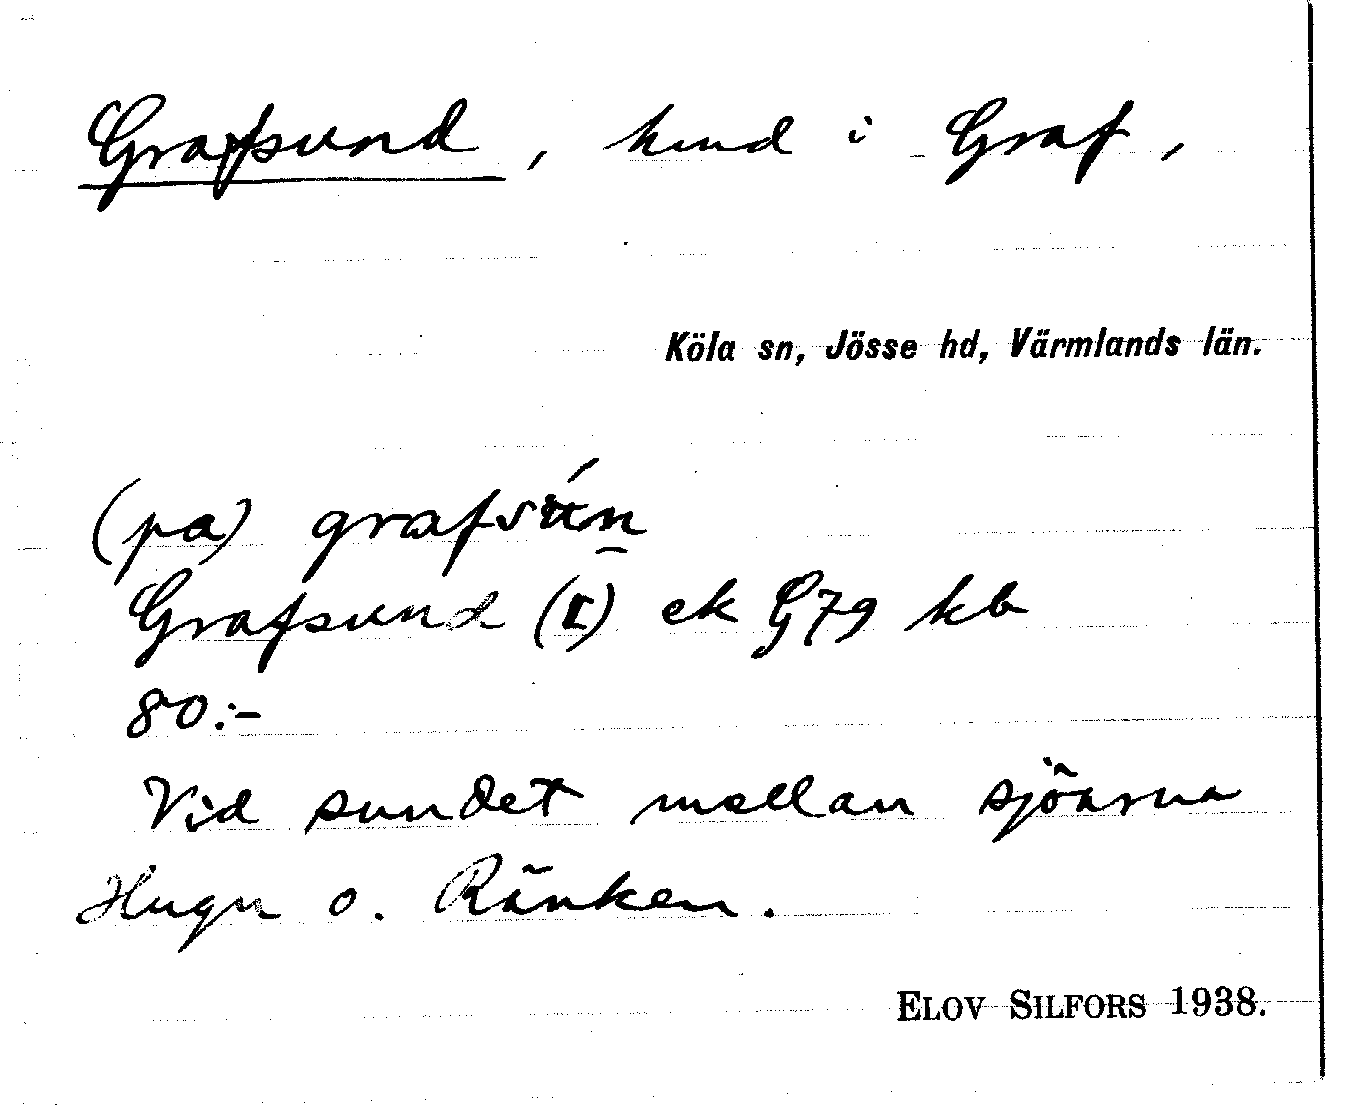 Grafsund, hmd i Graf,
Köla sn, Jösse hd, Värmlands län.
(pa) grafsún
Grafsund (I) ek G79 kb
80:-
Vid sundet mellan sjöarna
Hugn o. Ränken.
ELOV SILFORS 1938.